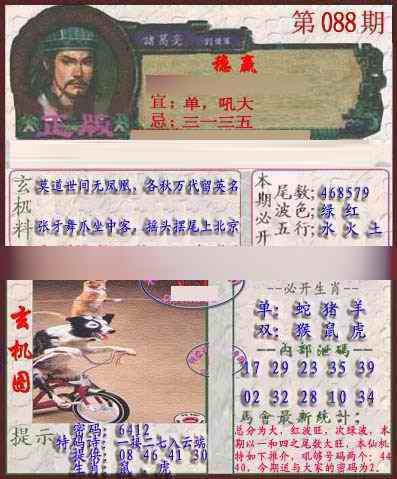 第088期
諸葛亮
稳赢
宜：单，吼大
忌：三一三五
正版
玄机料
莫道世间无凤凰，各秋万代留英名
张牙舞爪坐中客，摇头摆尾上北京
本期必开
尾数；468579
波色；绿 红
五行；水 火 土
玄机图
--必开生肖--
单：蛇 猪 羊
双：猴 鼠 虎
--內部泄码--
17 29 23 35 39
02 32 28 10 34
馬會最新統計：
总分为大，红波旺，次绿波，本
期以一和四之尾数大旺，本仙机
特如下推介，吼够号码两个：44
40，今期送与大家的密码为2.
提示
密码：6412
特码诗：一接二七入云端
提供：08 46 41 30
生肖：鼠 . 虎